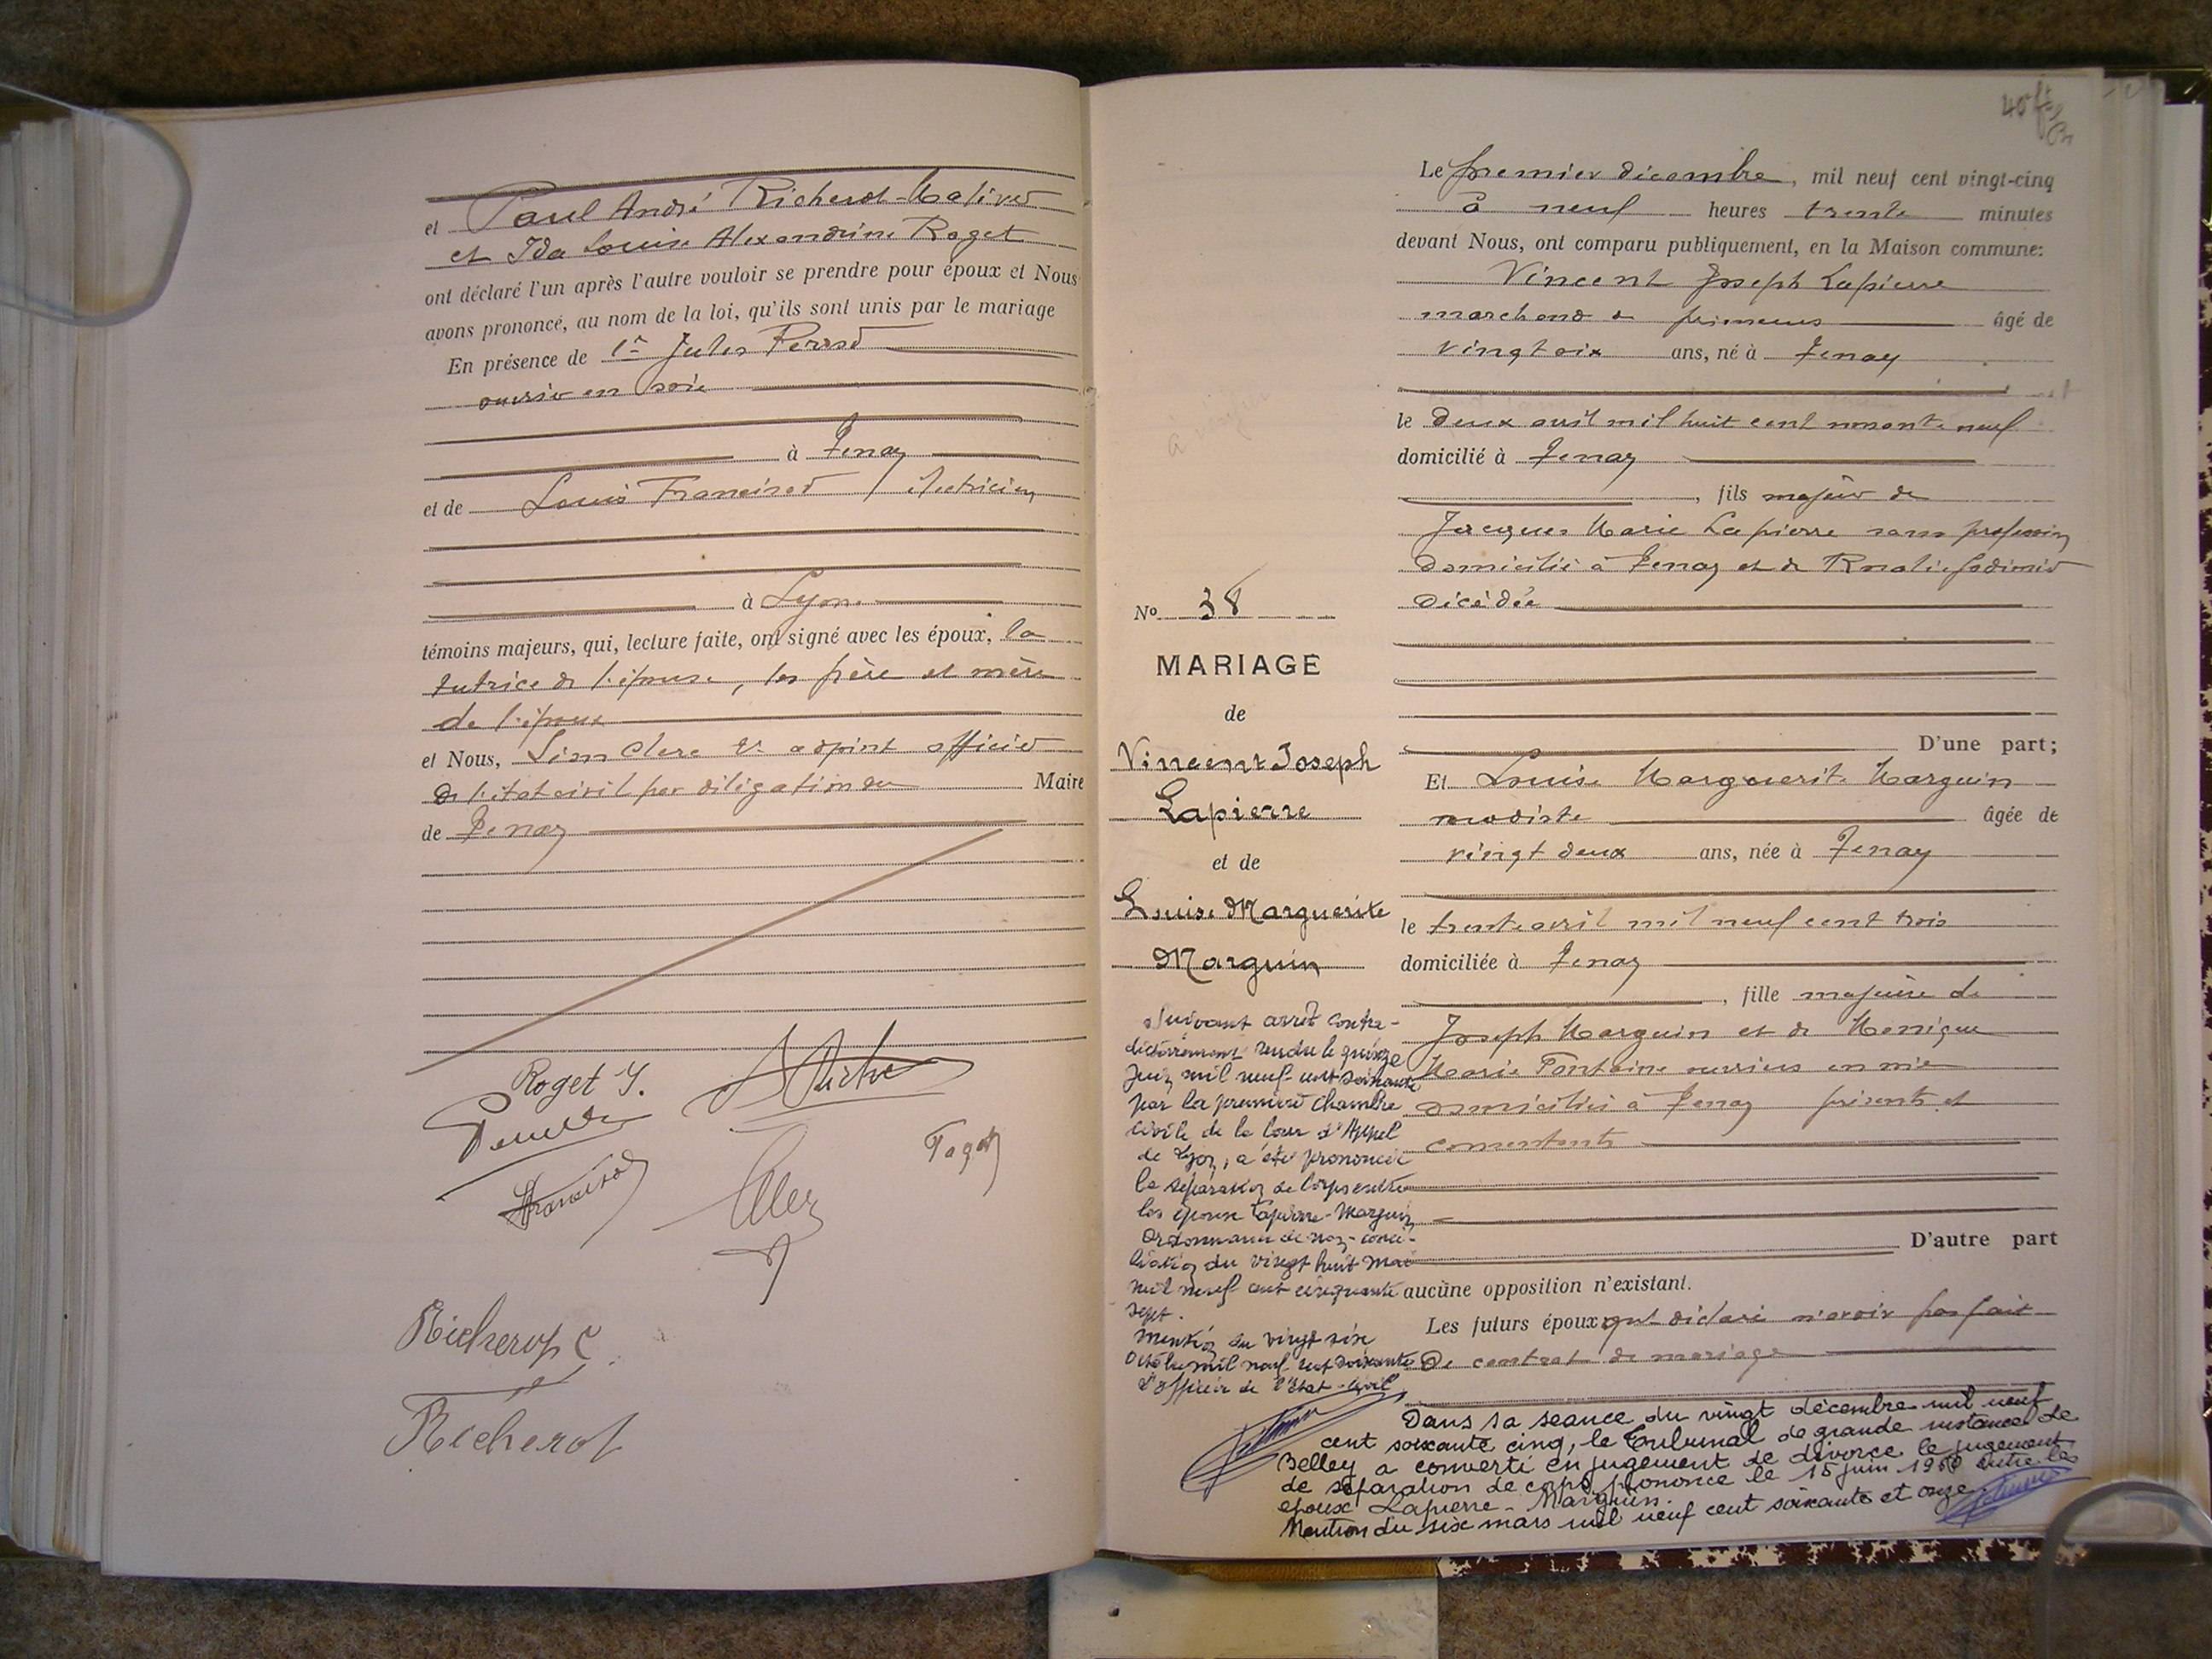 et Paul André Richerot-Matined
et Ida Louise Alexandrine Roget
ont déclaré l'un après l'autre vouloir se prendre pour époux et Nous
avons prononcé, au nom de la loi, qu'ils sont unis par le mariage
En présence de 1° Jules Perrod
ouvrier en soie
à Tenay
et de Louis Francisod électricien
à Lyon
témoins majeurs, qui, lecture faite, ont signé avec les époux, la
tutrice de l'épouse, les père et mère
de l'époux
et Nous, Simclere adjoint officier
de l'état civil par délégation du Maire
de Tenay
Roget Y.
Richerot C
Richerot
40
Le premier décembre, mil neuf cent vingt-cinq
à neuf heures trente minutes
devant Nous, ont comparu publiquement, en la Maison commune:
Vincent Joseph Lapierre
marchand de primeurs âgé de
vingt six ans, né à Tenay
le deux avril mil huit cent nonante neuf
domicilié à Tenay
, fils majeur de
Jacques Marie Lapierre sans profession
domicilié à Tenay et de
décédée
D'une part;
Et Louise Marguerite Marguin
modiste âgée de
vingt deux ans, née à Tenay
le trente avril mil neuf cent trois
domiciliée à Tenay
, fille majeure de
Joseph Marguin et de Monique
Marie Fontaine ouvriers en soie
domiciliés à Tenay présents et
consentants
D'autre part
aucune opposition n'existant.
Les futurs époux ont déclaré n'avoir pas fait
de contrat de mariage
N° 38
MARIAGE
de
Vincent Joseph
Lapierre
et de
Louise Marguerite
Marguin
Suivant arrêt contra-
dictoirement rendu le quinze
Juin mil neuf cent soixante
par la première chambre
civile de la Cour d'Appel
de Lyon, a été prononcée
la séparation de corps entre
les époux Lapierre-Marguin
Ordonnance de non-conci-
liation du vingt huit mai
mil neuf cent cinquante
sept.
Mention du vingt six
Octobre mil neuf cent soixante
L'Officier de l'Etat-Civil
Dans sa séance du vingt décembre mil neuf
cent soixante cinq, le Tribunal de grande instance de
Belley a converti en jugement de divorce le jugement
de séparation de corps prononcé le 15 juin 1960 entre les
époux Lapierre-Marguin.
Mention du six mars mil neuf cent soixante et onze.